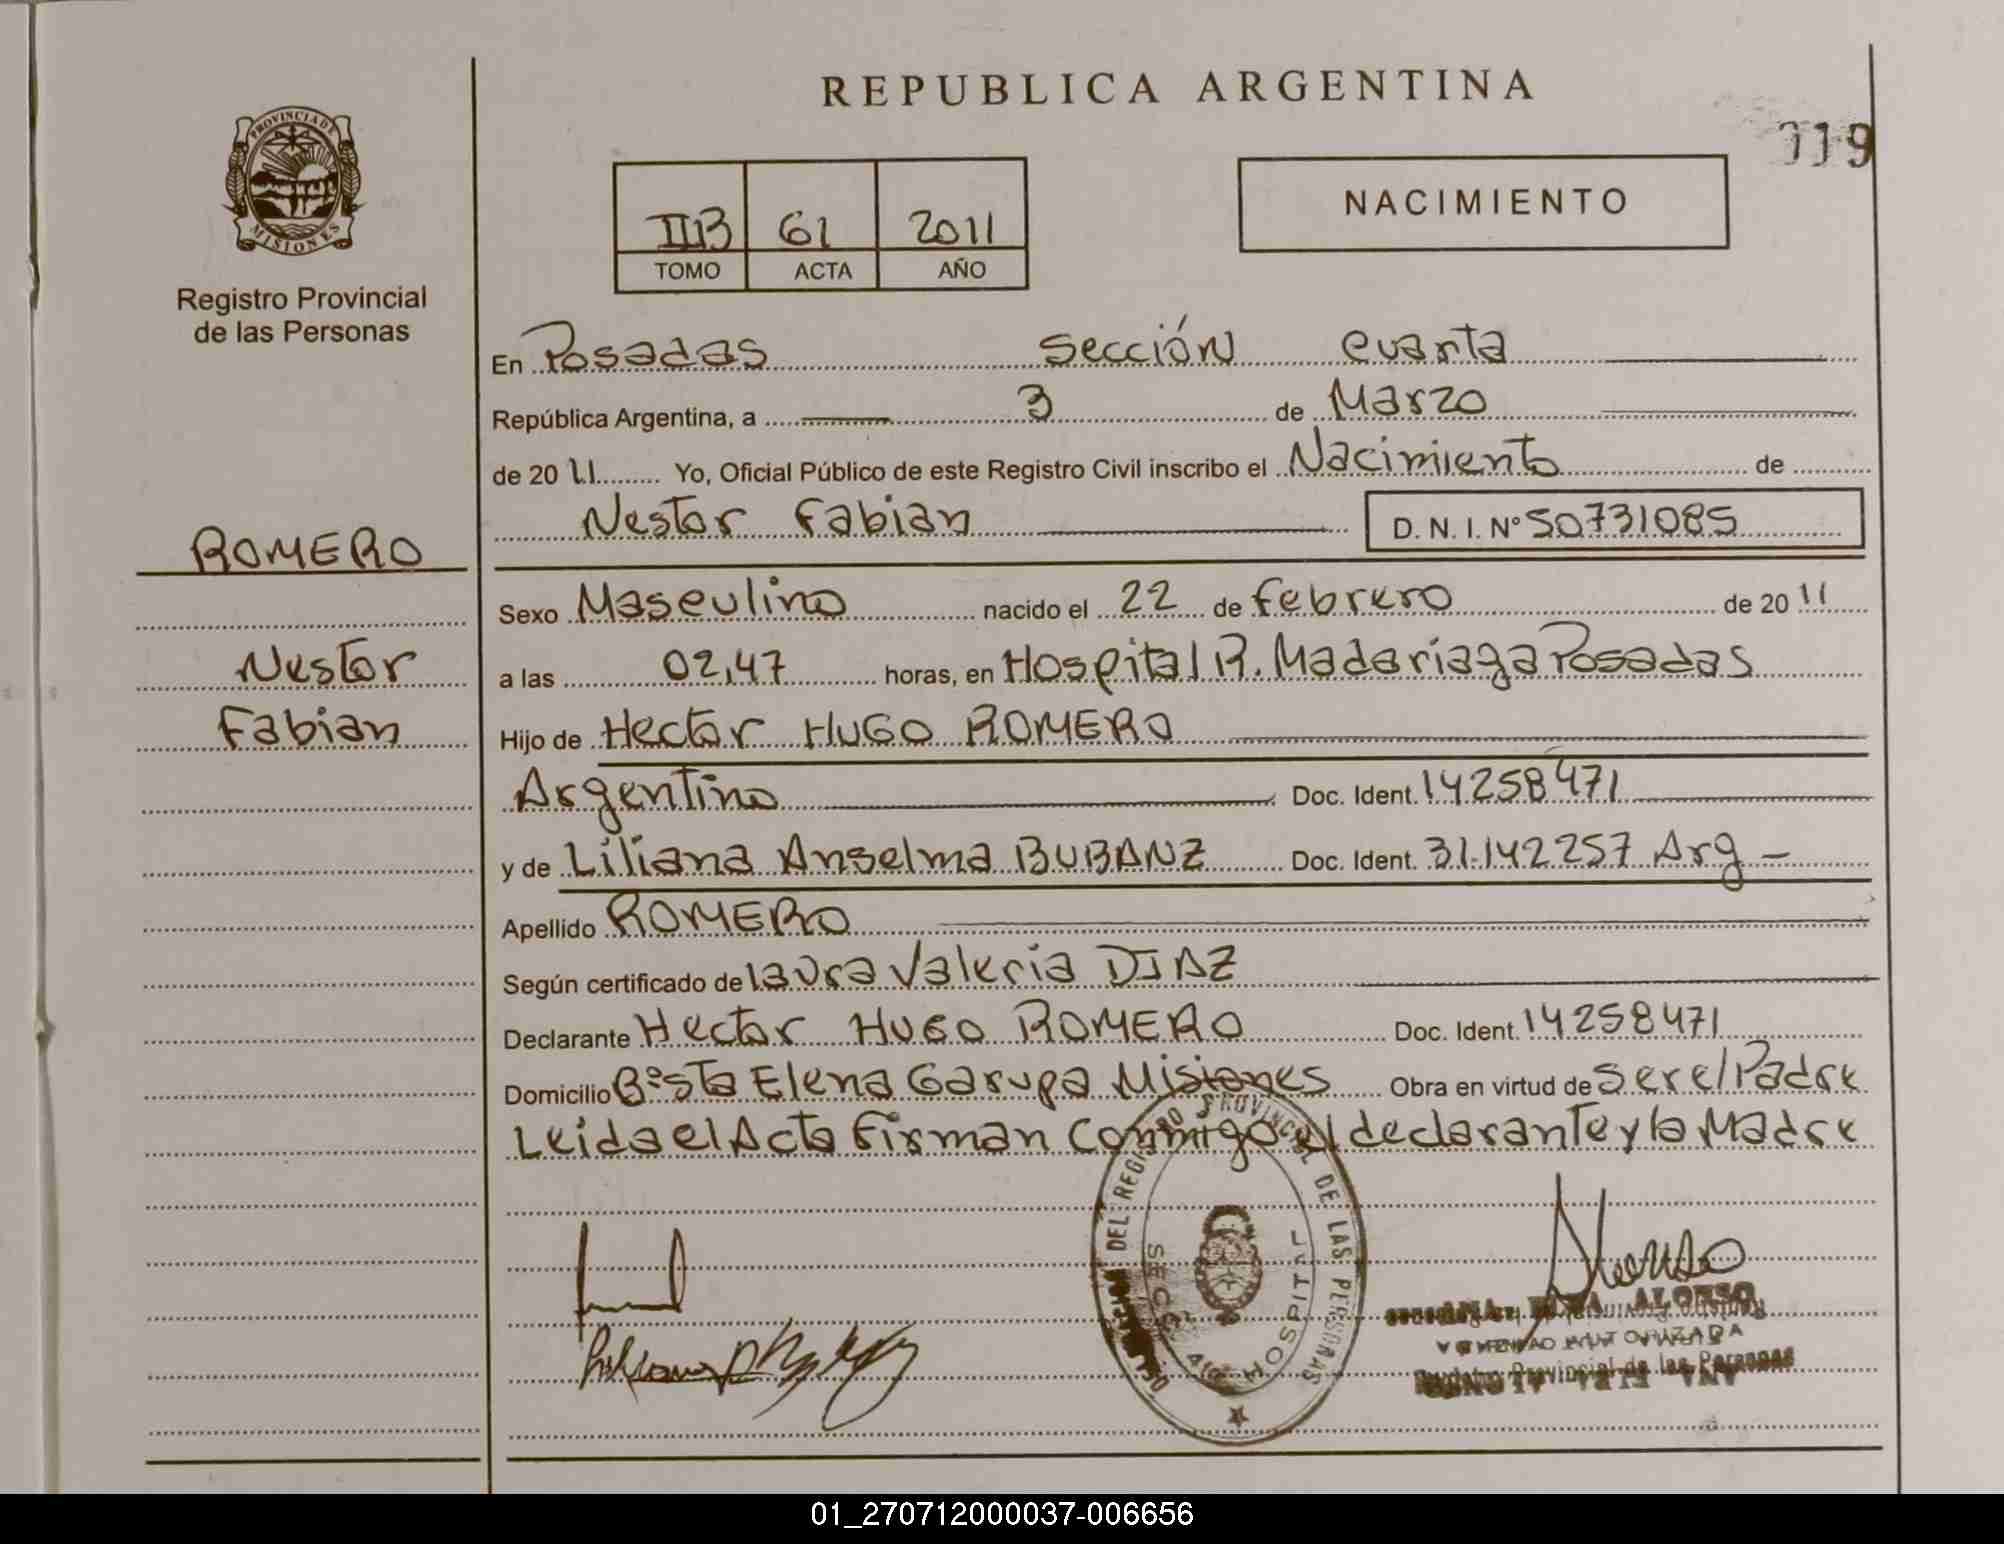 REPUBLICA ARGENTINA
119
PROVINCIA DE
MISIONES
Registro Provincial
de las Personas
NACIMIENTO
IIB 61 2011
TOMO ACTA AÑO
En Posadas Sección cuarta
República Argentina, a 3 de Marzo
de 2011 Yo, Oficial Público de este Registro Civil inscribo el Nacimiento de
Nestor Fabian D. N. I. Nº 50731085
ROMERO
Nestor
Fabian
Sexo Masculino nacido el 22 de Febrero de 2011
a las 02,47 horas, en Hospital R. Madariaga Posadas
Hijo de Hector HUGO ROMERO
Argentino Doc. Ident. 14258471
y de Liliana Anselma BUBANZ Doc. Ident. 31.142257 Arg -
Apellido ROMERO
Según certificado de Laura Valeria DIAZ
Declarante Hector HUGO ROMERO Doc. Ident. 14258471
Domicilio Bº Sta Elena Garupa Misiones Obra en virtud de Ser el Padre
Leida el Acta Firman Conmigo el declarante y la Madre
DEL REGISTRO PROVINCIAL DE LAS PERSONAS
HOSPITAL
ALONSO
Registro Provincial de las Personas
01_270712000037-006656